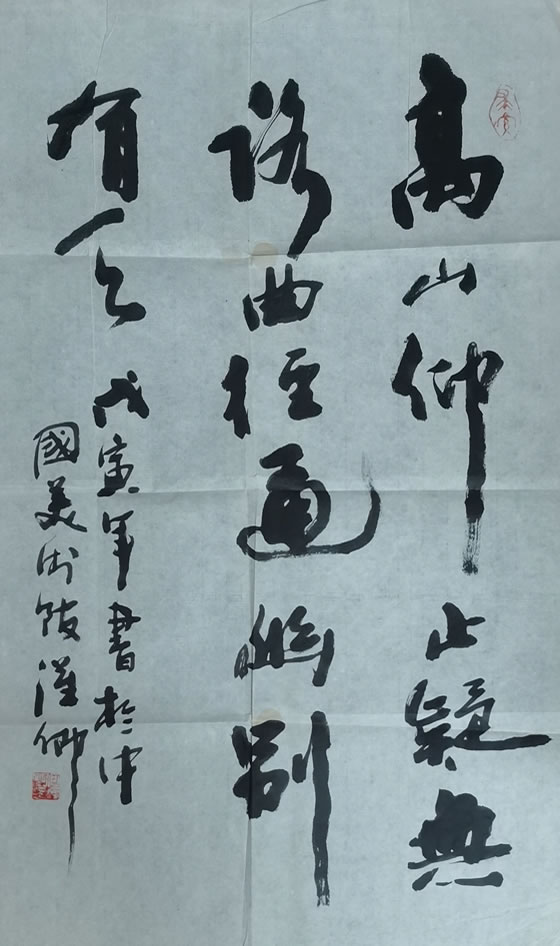 高山仰止疑無
路曲徑通幽別
有天
戊寅年書於中
國美術館漢卿